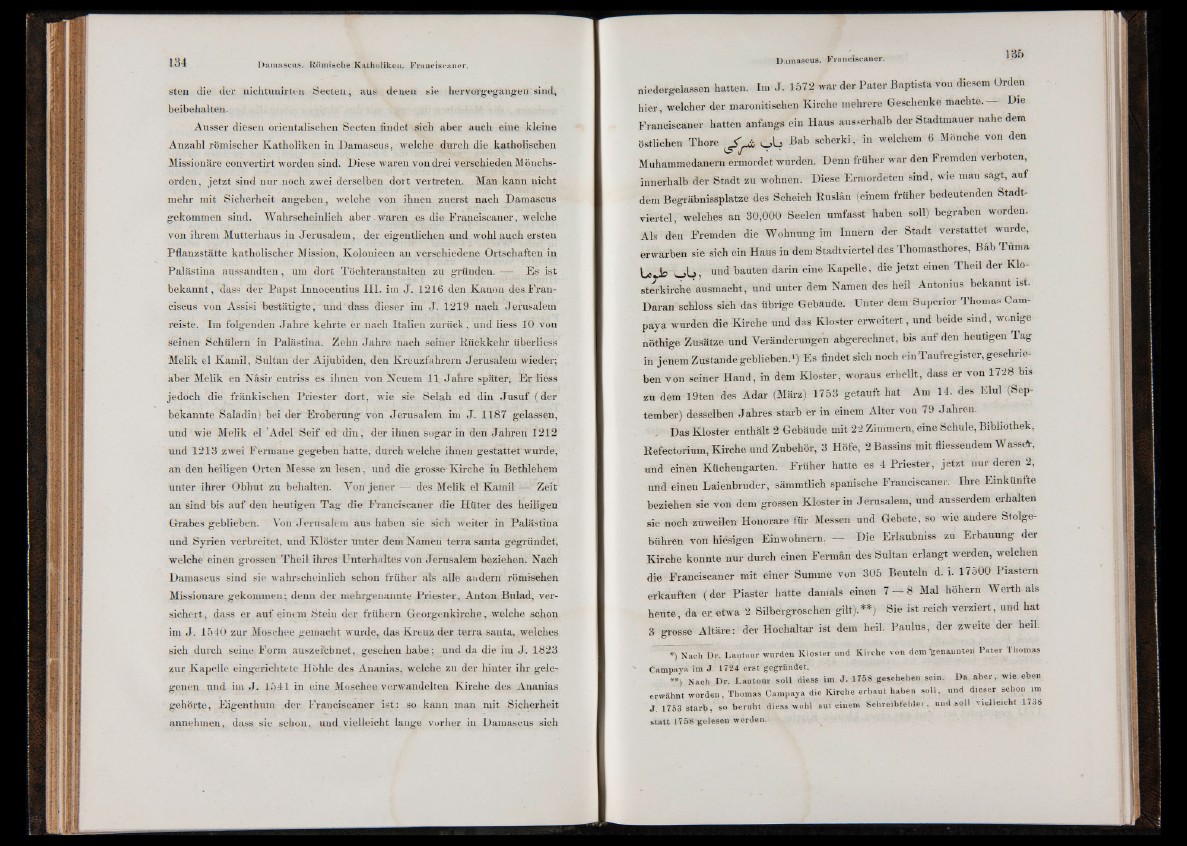 134
Damascus. Römische Katholiken. Franciscaner.
sten die der nichtunirten Secten, aus denen sie hervorgegangen sind,
beibehalten.
Ausser diesen orientalischen Secten findet sich aber auch eine kleine
Anzahl römischer Katholiken in Damascus, welche durch die katholischen
Missionäre convertirt worden sind. Diese waren von drei verschieden Mönchs-
orden, jetzt sind nur noch zwei derselben dort vertreten. Man kann nicht
mehr mit Sicherheit angeben, welche von ihnen zuerst nach Damascus
gekommen sind. Wahrscheinlich aber waren es die Franciscaner, welche
von ihrem Mutterhaus in Jerusalem, der eigentlichen und wohl auch ersten
Pflanzstätte katholischer Mission, Kolonieen an verschiedene Ortschaften in
Palästina aussandten, um dort Töchteranstalten zu gründen. — Es ist
bekannt, dass der Papst Innocentius III. im J. 1216 den Kanon des Fran-
ciscus von Assisi bestätigte, und dass dieser im J. 1219 nach Jerusalem
reiste. Im folgenden Jahre kehrte er nach Italien zurück, und liess 10 von
seinen Schülern in Palästina. Zehn Jahre nach seiner Rückkehr überliess
Melik el Kamil, Sultan der Aijubiden, den Kreuzfahrern Jerusalem wieder;
aber Melik en Nâsir entriss es ihnen von Neuem 11 Jahre später, Er liess
jedoch die fränkischen Priester dort, wie sie Selah ed din Jusuf (der
bekannte Saladin) bei der Eroberung von Jerusalem im J. 1187 gelassen,
und wie Melik el 'Adel Seif ed din, der ihnen sogar in den Jahren 1212
und 1213 zwei Fermane gegeben hatte, durch welche ihnen gestattet wurde,
an den heiligen Orten Messe zu lesen, und die grosse Kirche in Bethlehem
unter ihrer Obhut zu behalten. Von jener — des Melik el Kamil — Zeit
an sind bis auf den heutigen Tag die Franciscaner die Hüter des heiligen
Grabes geblieben. Von Jerusalem aus haben sie sich weiter in Palästina
und Syrien verbreitet, und Klöster unter dem Namen terra santa gegründet,
welche einen grossen Theil ihres Unterhaltes von Jerusalem beziehen. Nach
Damascus sind sie wahrscheinlich schon früher als alle andern römischen
Missionare gekommen; denn der mehrgenannte Priester, Anton Bulad, ver-
sichert, dass er auf einem Stein der frühern Georgenkirche, welche schon
im J. 1540 zur Moschee gemacht wurde, das Kreuz der terra santa, welches
sich durch seine Form auszeichnet, gesehen habe; und da die im J. 1823
zur Kapelle eingerichtete Höhle des Ananias, welche zu der hinter ihr gele-
genen und im J. 1541 in eine Moschee verwandelten Kirche des Ananias
gehörte, Eigenthum der Franciscaner ist: so kann man mit Sicherheit
annehmen, dass sie schon, und vielleicht lange vorher in Damascus sich
Damascus. Franciscaner.
135
niedergelassen hatten. Im J. 1572 war der Pater Baptista von diesem Orden
hier, welcher der maronitischen Kirche mehrere Geschenke machte. — Die
Franciscaner hatten anfangs ein Haus ausserhalb der Stadtmauer nahe dem
östlichen Thore باب شركى Bab scherki, in welchem 6 Mönche von den
Muhammedanern ermordet wurden. Denn früher war den Fremden verboten,
innerhalb der Stadt zu wohnen. Diese Ermordeten sind, wie man sagt, auf
dem Begräbnissplatze des Scheich Ruslân (einem früher bedeutenden Stadt-
viertel, welches an 30,000 Seelen umfasst haben soll) begraben worden.
Als den Fremden die Wohnung im Innern der Stadt verstattet wurde,
erwarben sie sich ein Haus in dem Stadtviertel des Thomasthores, Bâb Tûma
باب طوما, und bauten darin eine Kapelle, die jetzt einen Theil der Klo-
sterkirche ausmacht, und unter dem Namen des heil Antonius bekannt ist.
Daran schloss sich das übrige Gebäude. Unter dem Superior Thomas Cam-
paya wurden die Kirche und das Kloster erweitert, und beide sind, wenige
nöthige Zusätze und Veränderungen abgerechnet, bis auf den heutigen Tag
in jenem Zustande geblieben.¹) Es findet sich noch ein Taufregister, geschrie-
ben von seiner Hand, in dem Kloster, woraus erhellt, dass er von 1728 bis
zu dem 19ten des Adar (März) 1753 getauft hat Am 14. des Elul (Sep-
tember) desselben Jahres starb er in einem Alter von 79 Jahren.
Das Kloster enthält 2 Gebäude mit 22 Zimmern, eine Schule, Bibliothek,
Refectorium, Kirche und Zubehör, 3 Höfe, 2 Bassins mit fliessendem Wasser,
und einen Küchengarten. Früher hatte es 4 Priester, jetzt nur deren 2,
und einen Laienbruder, sämmtlich spanische Franciscaner. Ihre Einkünfte
beziehen sie von dem grossen Kloster in Jerusalem, und ausserdem erhalten
sie noch zuweilen Honorare für Messen und Gebete, so wie andere Stolge-
bühren von hiesigen Einwohnern. — Die Erlaubniss zu Erbauung der
Kirche konnte nur durch einen Fermân des Sultan erlangt werden, welchen
die Franciscaner mit einer Summe von 305 Beuteln d. i. 17500 Piastern
erkauften (der Piaster hatte damals einen 7 — 8 Mal höhern Werth als
heute, da er etwa 2 Silbergroschen gilt).**) Sie ist reich verziert, und hat
3 grosse Altäre: der Hochaltar ist dem heil. Paulus, der zweite der heil.
*) Nach Dr. Lautour wurden Kloster und Kirche von dem genannten Pater Thomas
Campaya im J 1724 erst gegründet.
**) Nach Dr. Lautour soll diess im J. 1758 geschehen sein. Da aber, wie eben
erwähnt worden, Thomas Campaya die Kirche erbaut haben soll, und dieser schon im
J. 1753 starb, so beruht diess wohl auf einem Schreibfehler, und soll vielleicht 1738
statt 1758 gelesen werden.